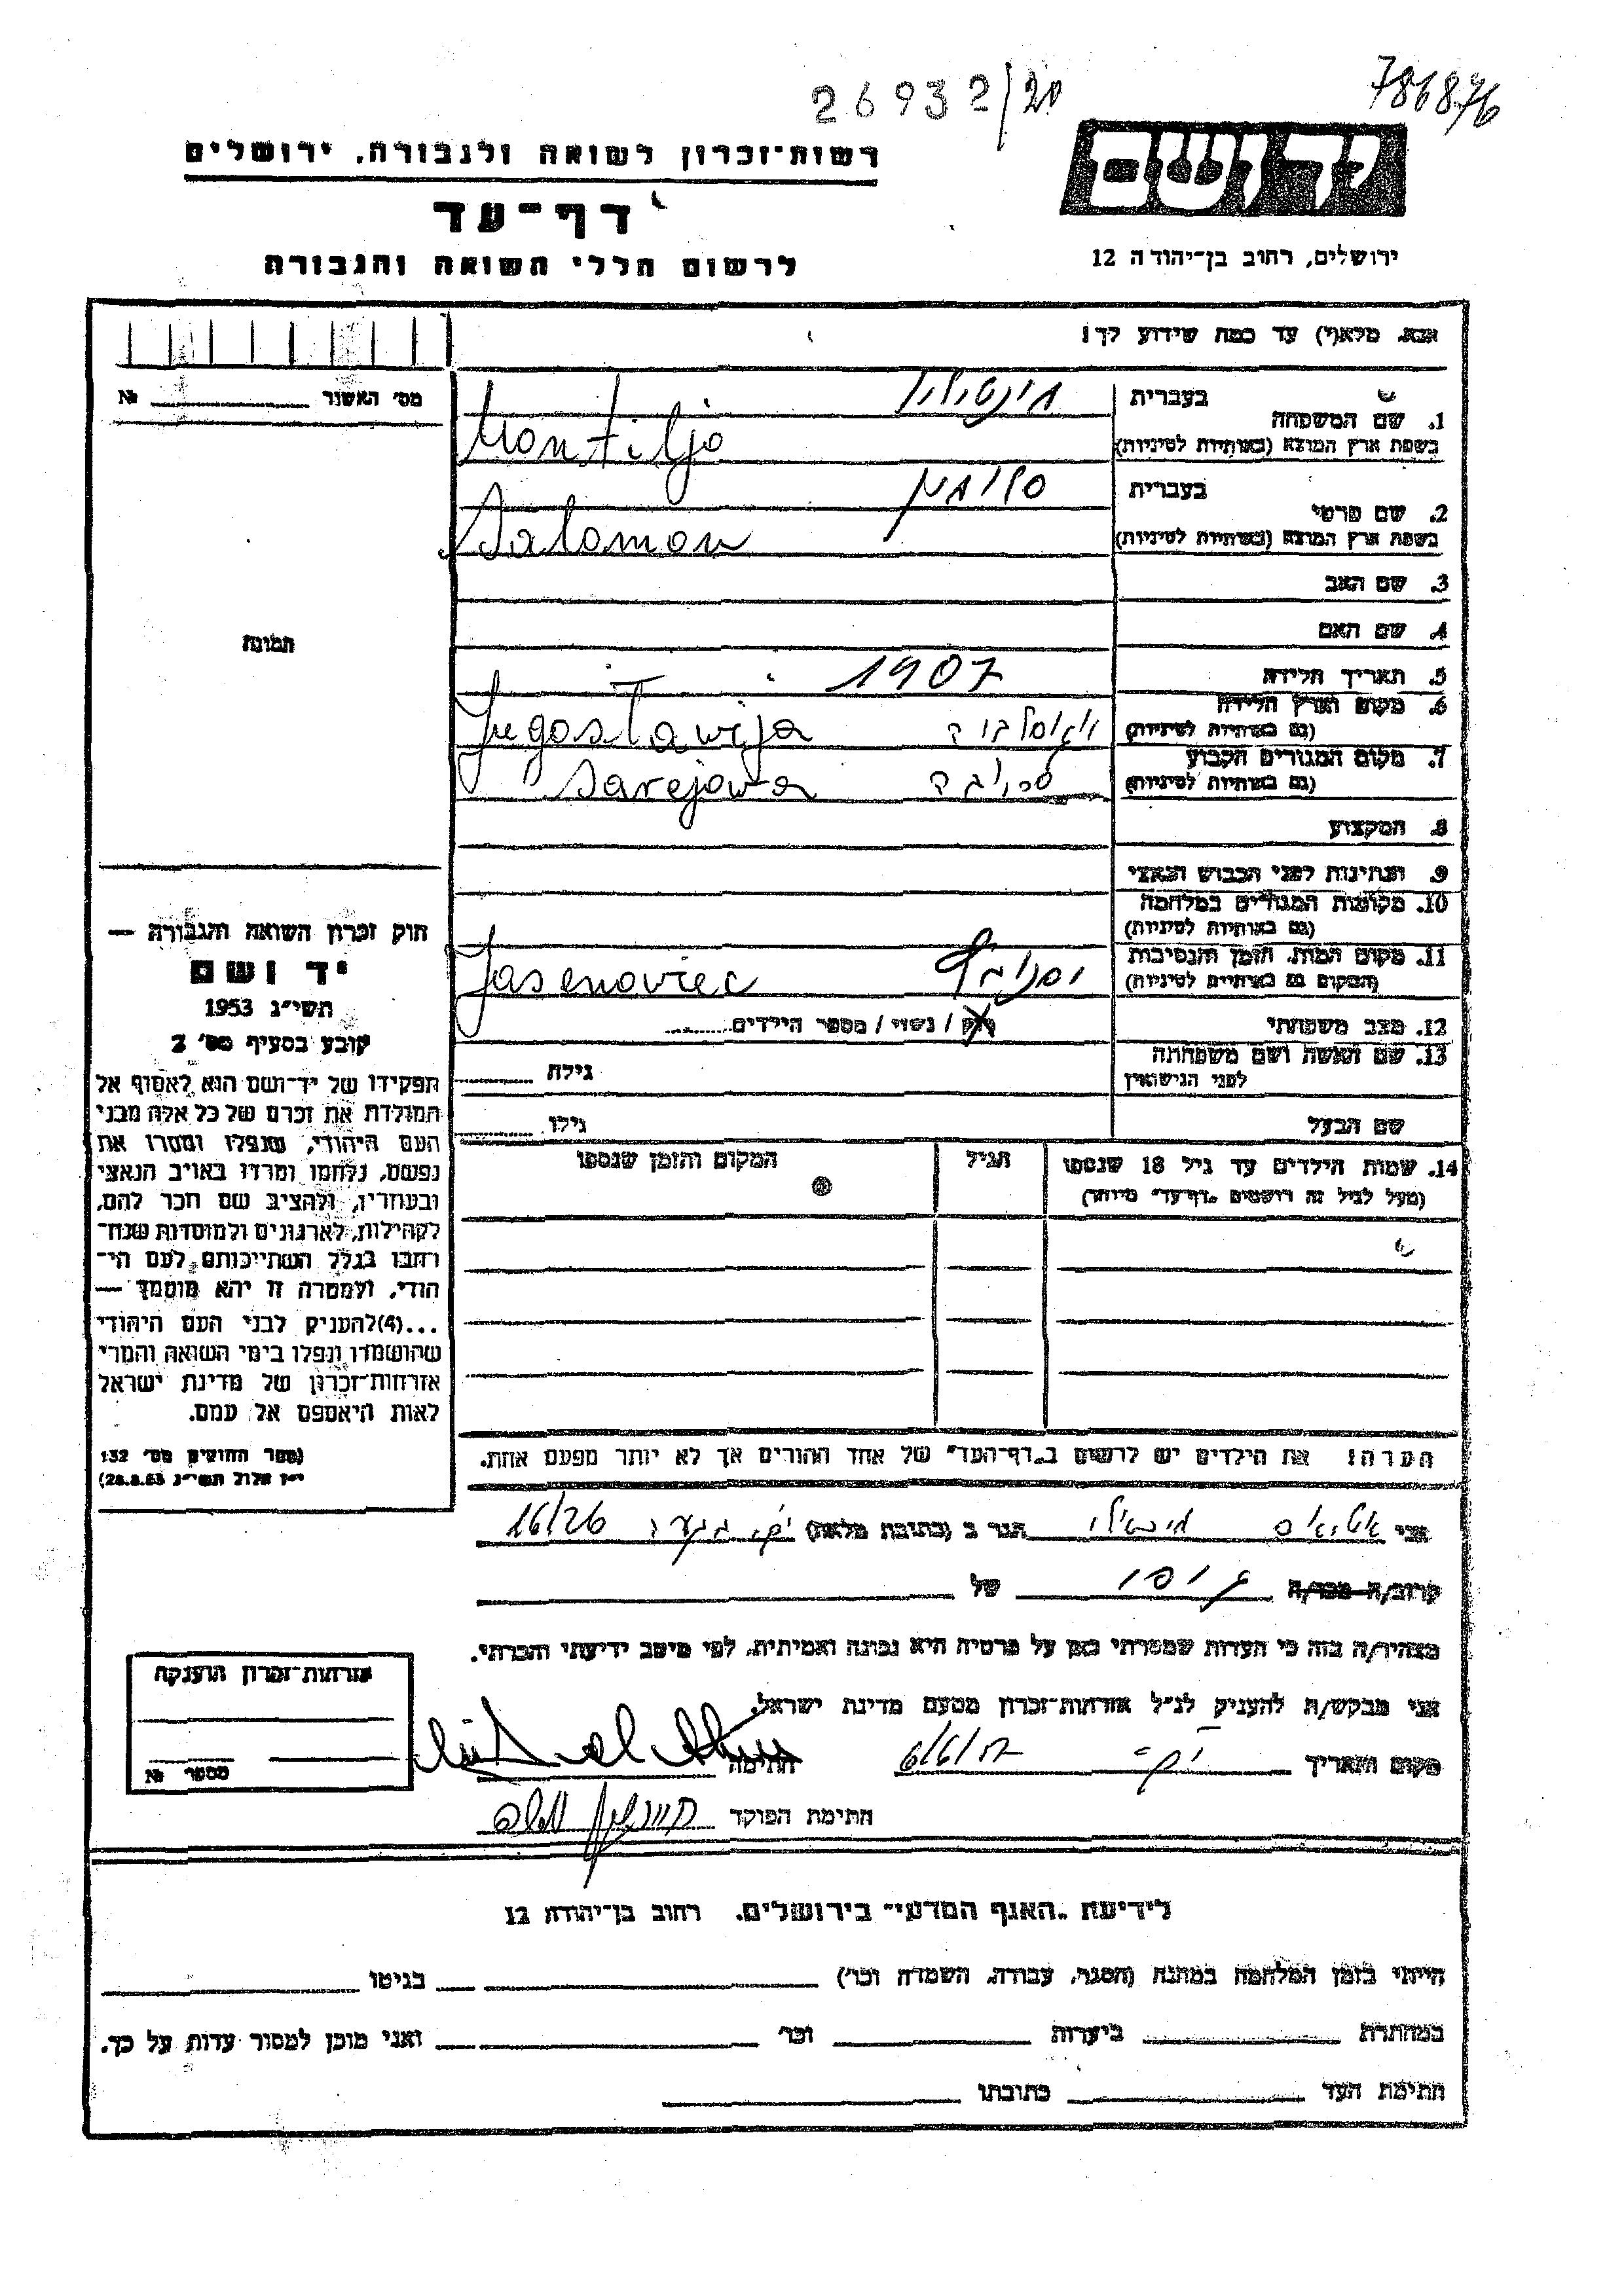 26932/20
786876
רשות־זכרון לשואה ולגבורה, ירושלים
דף־עד
לרשום חללי השואה והגבורה
יד ושם
ירושלים, רחוב בן־יהודה 12
אנא, מלא(י) עד כמה שידוע לך!
מס' האשור № 
בעברית
1. שם המשפחה
בשפת ארץ המוצא (באותיות לטיניות)
Montiljo
בעברית סלומון
2. שם פרטי
בשפת ארץ המוצא (באותיות לטיניות)
Salomon
3. שם האב
4. שם האם
תמונה
5. תאריך הלידה 1907
6. מקום וארץ הלידה
(גם באותיות לטיניות) יוגוסלביה Jugoslawija
7. מקום המגורים הקבוע
(גם באותיות לטיניות) Sarejawo
8. המקצוע
9. הנתינות לפני הכבוש הנאצי
10. מקומות המגורים במלחמה
(גם באותיות לטיניות)
11. מקום המות, הזמן והנסיבות
(המקום גם באותיות לטיניות) Jasenoviec
12. מצב משפחתי רווק / נשוי / מספר הילדים
13. שם האשה ושם משפחתה
לפני הנישואין גילה
שם הבעל גילו
14. שמות הילדים עד גיל 18 שנספו הגיל המקום והזמן שנספו
(מעל לגיל זה רושמים „דף־עד" מיוחד)
הערה: את הילדים יש לרשום ב„דף־העד" של אחד ההורים אך לא יותר מפעם אחת.
חוק זכרון השואה והגבורה —
יד ושם
תשי"ג 1953
קובע בסעיף מס' 2
תפקידו של יד־ושם הוא לאסוף אל
המולדת את זכרם של כל אלה מבני
העם היהודי, שנפלו ומסרו את
נפשם, נלחמו ומרדו באויב הנאצי
ובעוזריו, ולהציב שם וזכר להם,
לקהילות, לארגונים ולמוסדות שנח־
רבו בגלל השתייכותם לעם הי־
הודי, ולמטרה זו יהא מוסמך —
...(4) להעניק לבני העם היהודי
שהושמדו ונפלו בימי השואה והמרי
אזרחות־זכרון של מדינת ישראל
לאות היאספם אל עמם.
(ספר החוקים מס' 132
י"ז אלול תשי"ג 28.8.53)
אני הגר ב (כתובת מלאה) 16/26
קרוב/ה מכר/ה של
מצהיר/ה בזה כי העדות שמסרתי כאן על פרטיה היא נכונה ואמיתית, לפי מיטב ידיעתי והכרתי.
אני מבקש/ת להעניק לנ"ל אזרחות־זכרון מטעם מדינת ישראל.
מקום ותאריך חתימה
חתימת הפוקד
אזרחות־זכרון הוענקה
מספר №
לידיעת „האגף המדעי" בירושלים, רחוב בן־יהודה 12
הייתי בזמן המלחמה במחנה (הסגר, עבודה, השמדה וכו') בגיטו
במחתרת ביערות וכו' ואני מוכן למסור עדות על כך.
חתימת העד כתובתו